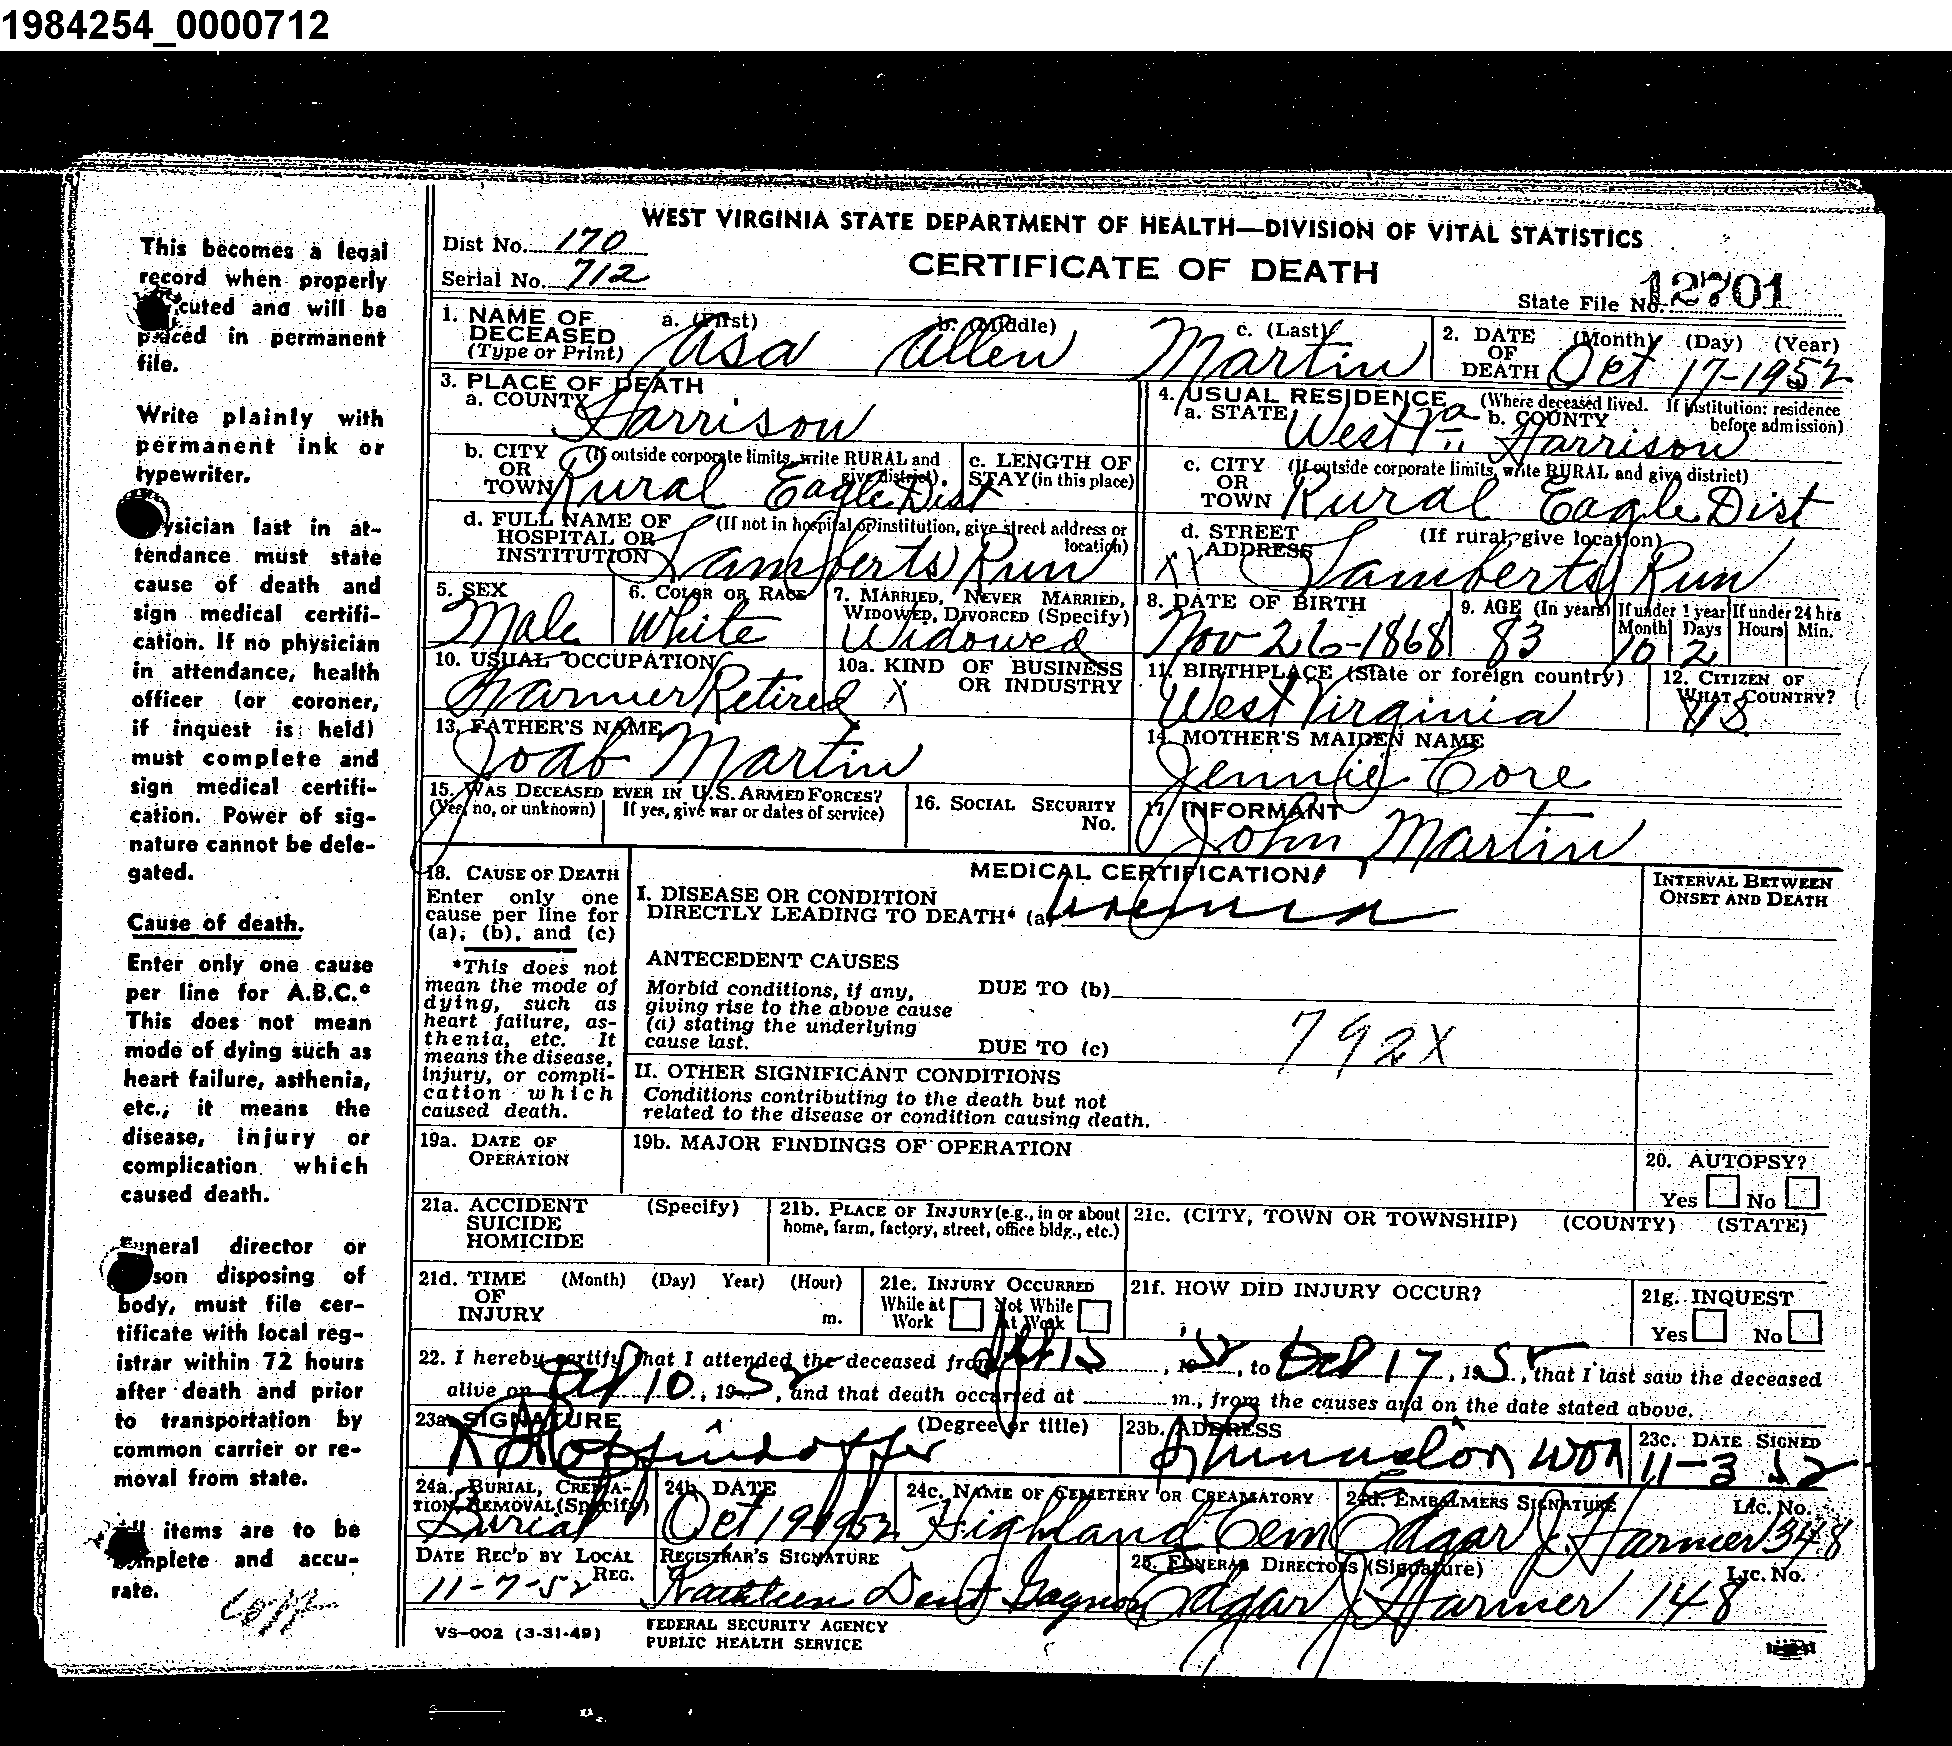 1984254_0000712
WEST VIRGINIA STATE DEPARTMENT OF HEALTH—DIVISION OF VITAL STATISTICS
Dist No. 170
Serial No. 712
CERTIFICATE OF DEATH
State File No. 12701
1. NAME OF DECEASED (Type or Print) a. (First) Asa b. (Middle) Allen c. (Last) Martin
2. DATE OF DEATH (Month) (Day) (Year) Oct 17-1952
3. PLACE OF DEATH
a. COUNTY Harrison
4. USUAL RESIDENCE (Where deceased lived. If institution: residence before admission)
a. STATE West Va b. COUNTY Harrison
b. CITY OR TOWN (If outside corporate limits, write RURAL and give district) Rural Eagle Dist
c. LENGTH OF STAY (in this place)
c. CITY OR TOWN (If outside corporate limits, write RURAL and give district) Rural Eagle Dist
d. FULL NAME OF HOSPITAL OR INSTITUTION (If not in hospital or institution, give street address or location) Lamberts Run
d. STREET ADDRESS (If rural, give location) XX Lamberts Run
5. SEX Male
6. COLOR OR RACE White
7. MARRIED, NEVER MARRIED, WIDOWED, DIVORCED (Specify) Widowed
8. DATE OF BIRTH Nov 26-1868
9. AGE (In years) 83 If under 1 year Month 10 Days 2 If under 24 hrs Hours Min.
10. USUAL OCCUPATION Farmer Retired
10a. KIND OF BUSINESS OR INDUSTRY X
11. BIRTHPLACE (State or foreign country) West Virginia
12. CITIZEN OF WHAT COUNTRY? US
13. FATHER'S NAME Joab Martin
14. MOTHER'S MAIDEN NAME Jennie Core
15. WAS DECEASED EVER IN U.S. ARMED FORCES? (Yes, no, or unknown) If yes, give war or dates of service)
16. SOCIAL SECURITY No.
17. INFORMANT John Martin
18. CAUSE OF DEATH
Enter only one cause per line for (a), (b), and (c)
*This does not mean the mode of dying, such as heart failure, asthenia, etc. It means the disease, injury, or complication which caused death.
MEDICAL CERTIFICATION
INTERVAL BETWEEN ONSET AND DEATH
I. DISEASE OR CONDITION
DIRECTLY LEADING TO DEATH* (a) Uremia
ANTECEDENT CAUSES
Morbid conditions, if any, giving rise to the above cause (a) stating the underlying cause last.
DUE TO (b)
DUE TO (c)
792X
II. OTHER SIGNIFICANT CONDITIONS
Conditions contributing to the death but not related to the disease or condition causing death.
19a. DATE OF OPERATION
19b. MAJOR FINDINGS OF OPERATION
20. AUTOPSY?
Yes No
21a. ACCIDENT SUICIDE HOMICIDE (Specify)
21b. PLACE OF INJURY (e.g., in or about home, farm, factory, street, office bldg., etc.)
21c. (CITY, TOWN OR TOWNSHIP) (COUNTY) (STATE)
21d. TIME OF INJURY (Month) (Day) Year) (Hour) m.
21e. INJURY OCCURRED
While at Work Not While At Work
21f. HOW DID INJURY OCCUR?
21g. INQUEST
Yes No
22. I hereby certify that I attended the deceased from 15, 1952, to Oct 17, 1952, that I last saw the deceased
alive on Oct 10, 1952, and that death occurred at m., from the causes and on the date stated above.
23a. SIGNATURE (Degree or title)
23b. ADDRESS Shinnston W Va
23c. DATE SIGNED 11-3 52
24a. BURIAL, CREMATION, REMOVAL (Specify) Burial
24b. DATE Oct 19-1952
24c. NAME OF CEMETERY OR CREAMATORY Highland Cem
24d. EMBALMERS SIGNATURE Lic. No. Edgar J. Harmer 348
DATE REC'D BY LOCAL REG. 11-7-52
REGISTRAR'S SIGNATURE Kathleen Dent Gagnon
25. FUNERAL DIRECTORS (Signature) Lic. No. Edgar J. Harmer 148
VS-002 (3-31-49)
FEDERAL SECURITY AGENCY
PUBLIC HEALTH SERVICE
This becomes a legal
record when properly
cuted and will be
placed in permanent
file.
Write plainly with
permanent ink or
typewriter.
ysician last in at-
tendance must state
cause of death and
sign medical certifi-
cation. If no physician
in attendance, health
officer (or coroner,
if inquest is held)
must complete and
sign medical certifi-
cation. Power of sig-
nature cannot be dele-
gated.
Cause of death.
Enter only one cause
per line for A.B.C.*
This does not mean
mode of dying such as
heart failure, asthenia,
etc., it means the
disease, injury or
complication which
caused death.
Funeral director or
son disposing of
body, must file cer-
tificate with local reg-
istrar within 72 hours
after death and prior
to transportation by
common carrier or re-
moval from state.
All items are to be
complete and accu-
rate.
copy